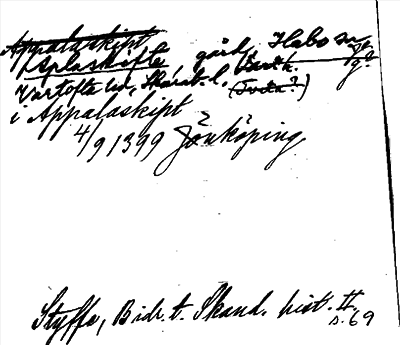 Appalaskipt
Aplaskifte gård, Habo sn,
Vartofta hd, Skarab. l. (Tveta?)
i Appalaskipt
4/9 1399 Jönköping
Styffe, Bidr. t. Skand. hist. II
s. 69